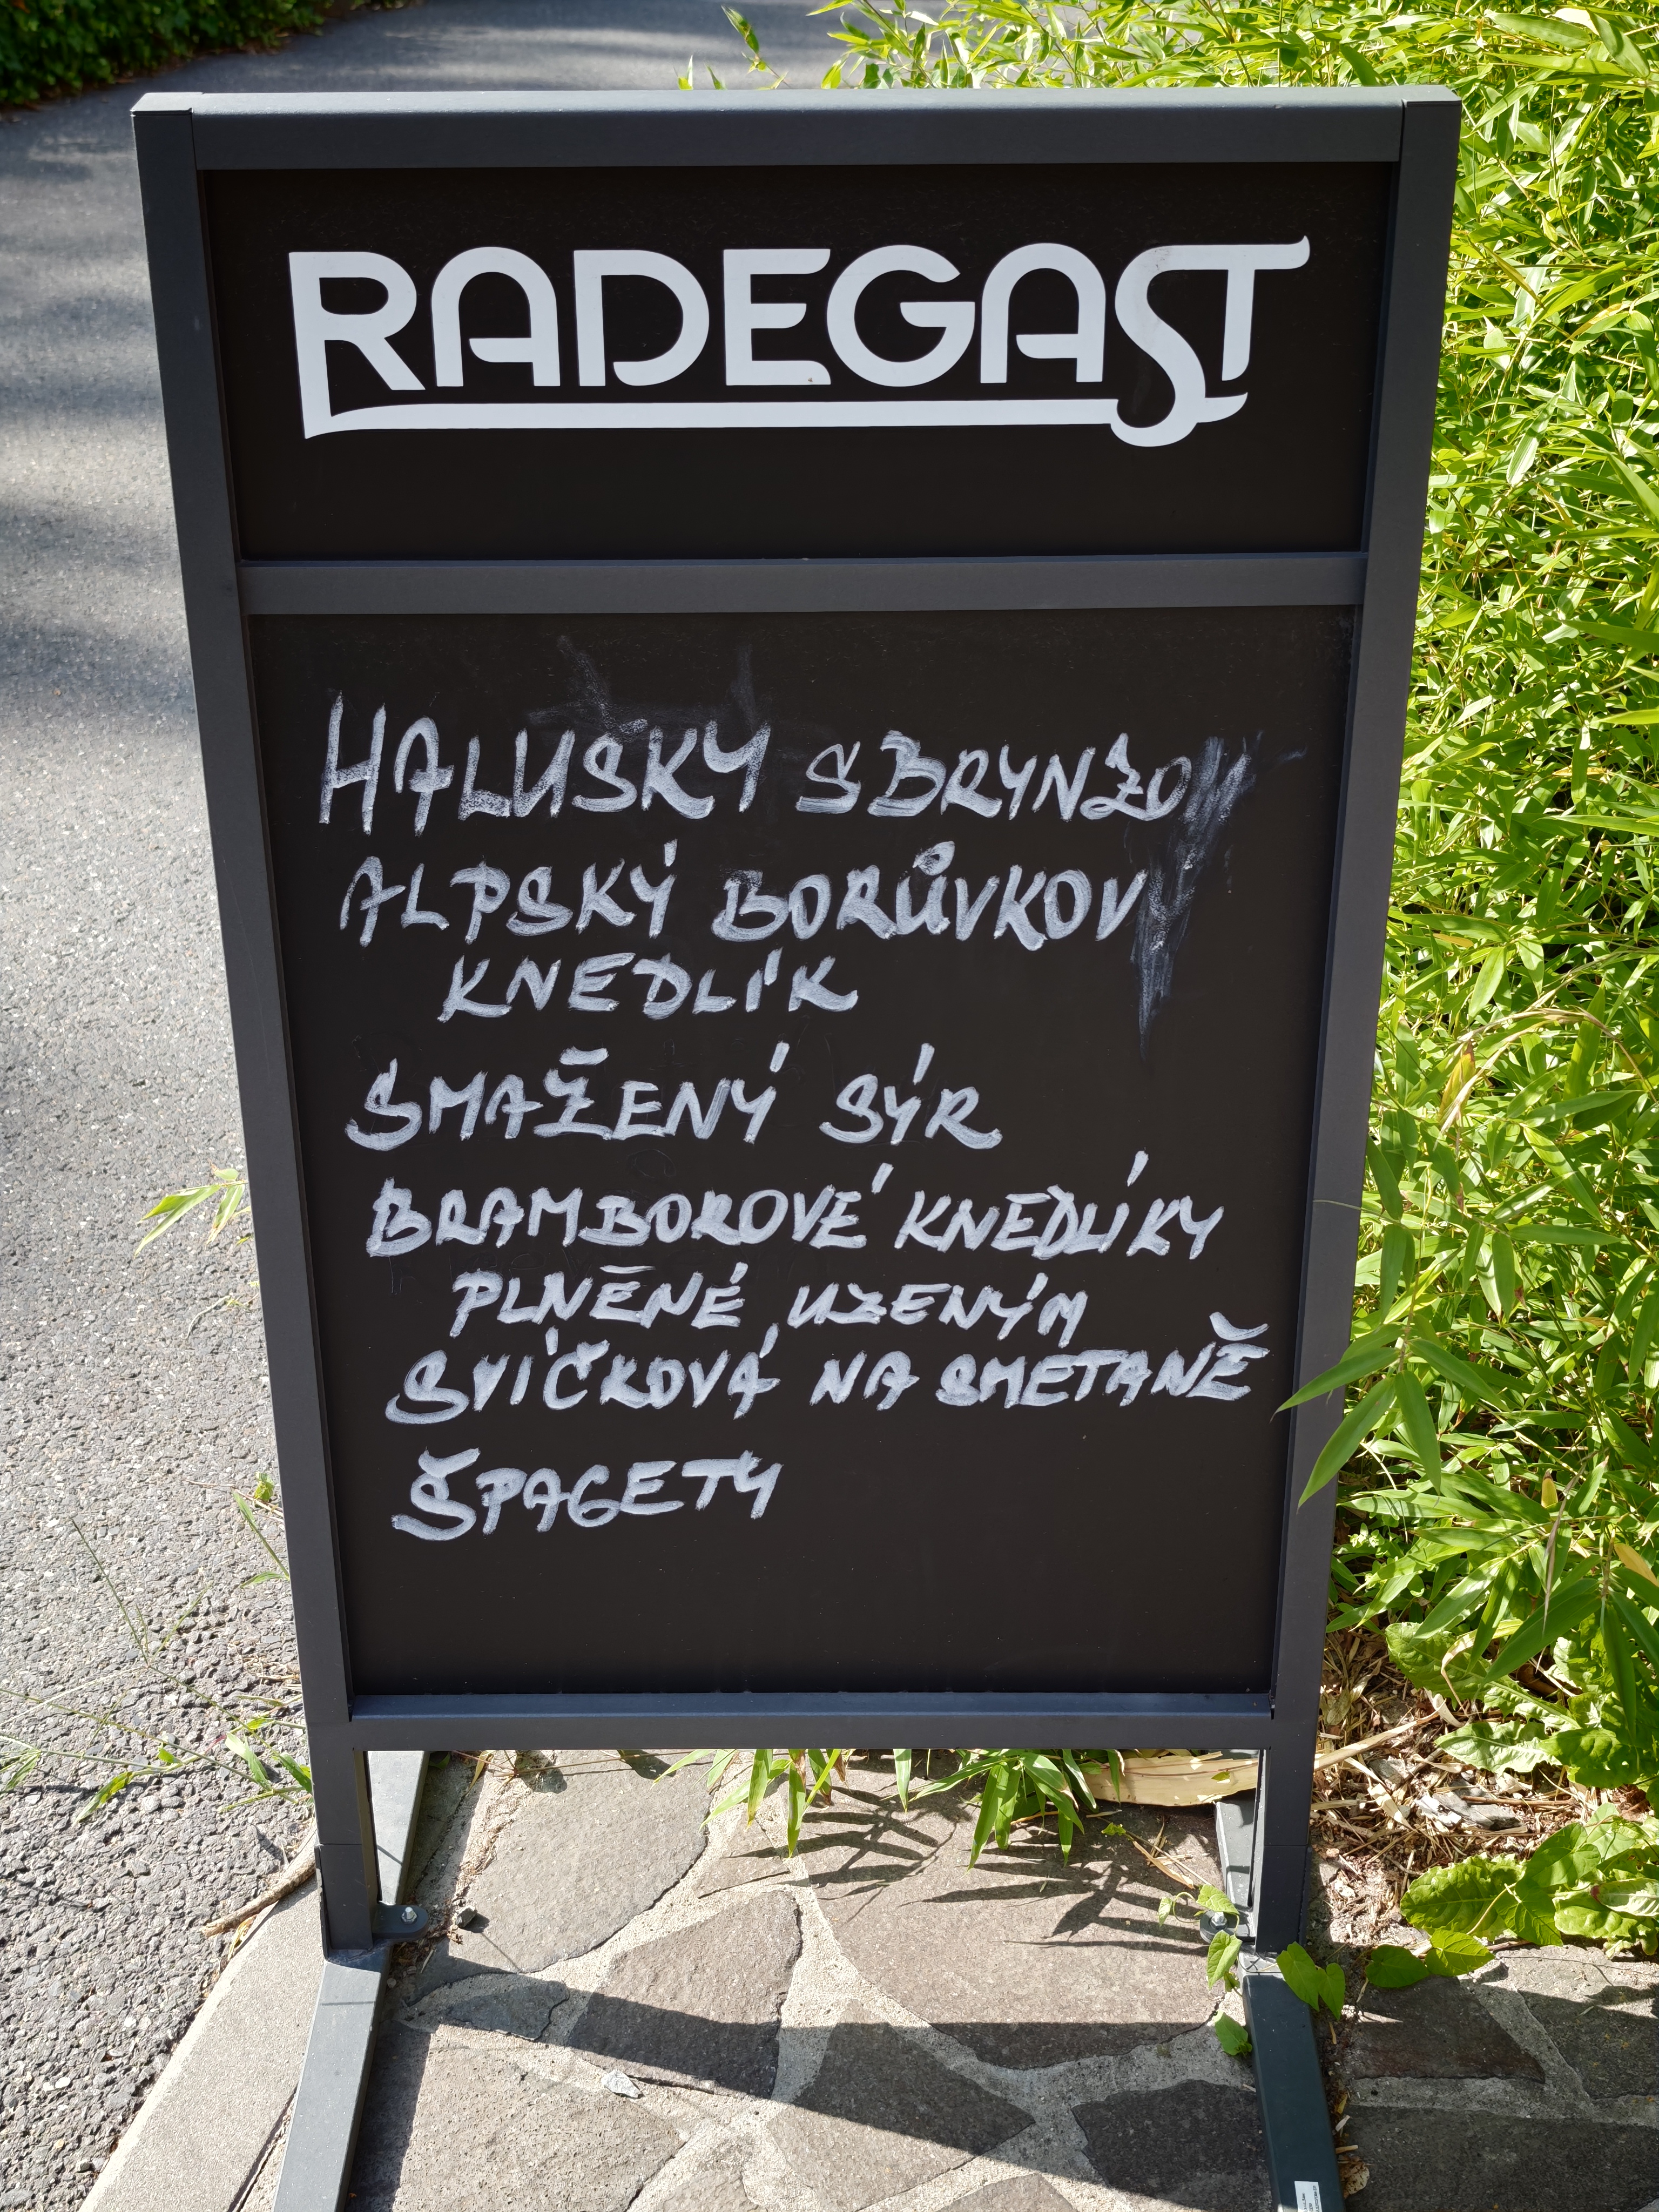 RADEGAST
HALUSKY S BRYNZO
ALPSKÝ BORŮVKOV
KNEDLÍK
SMAŽENÝ SÝR
BRAMBOROVÉ KNEDLÍKY
PLNĚNÉ UZENÝM
SVÍČKOVÁ NA SMETANĚ
ŠPAGETY